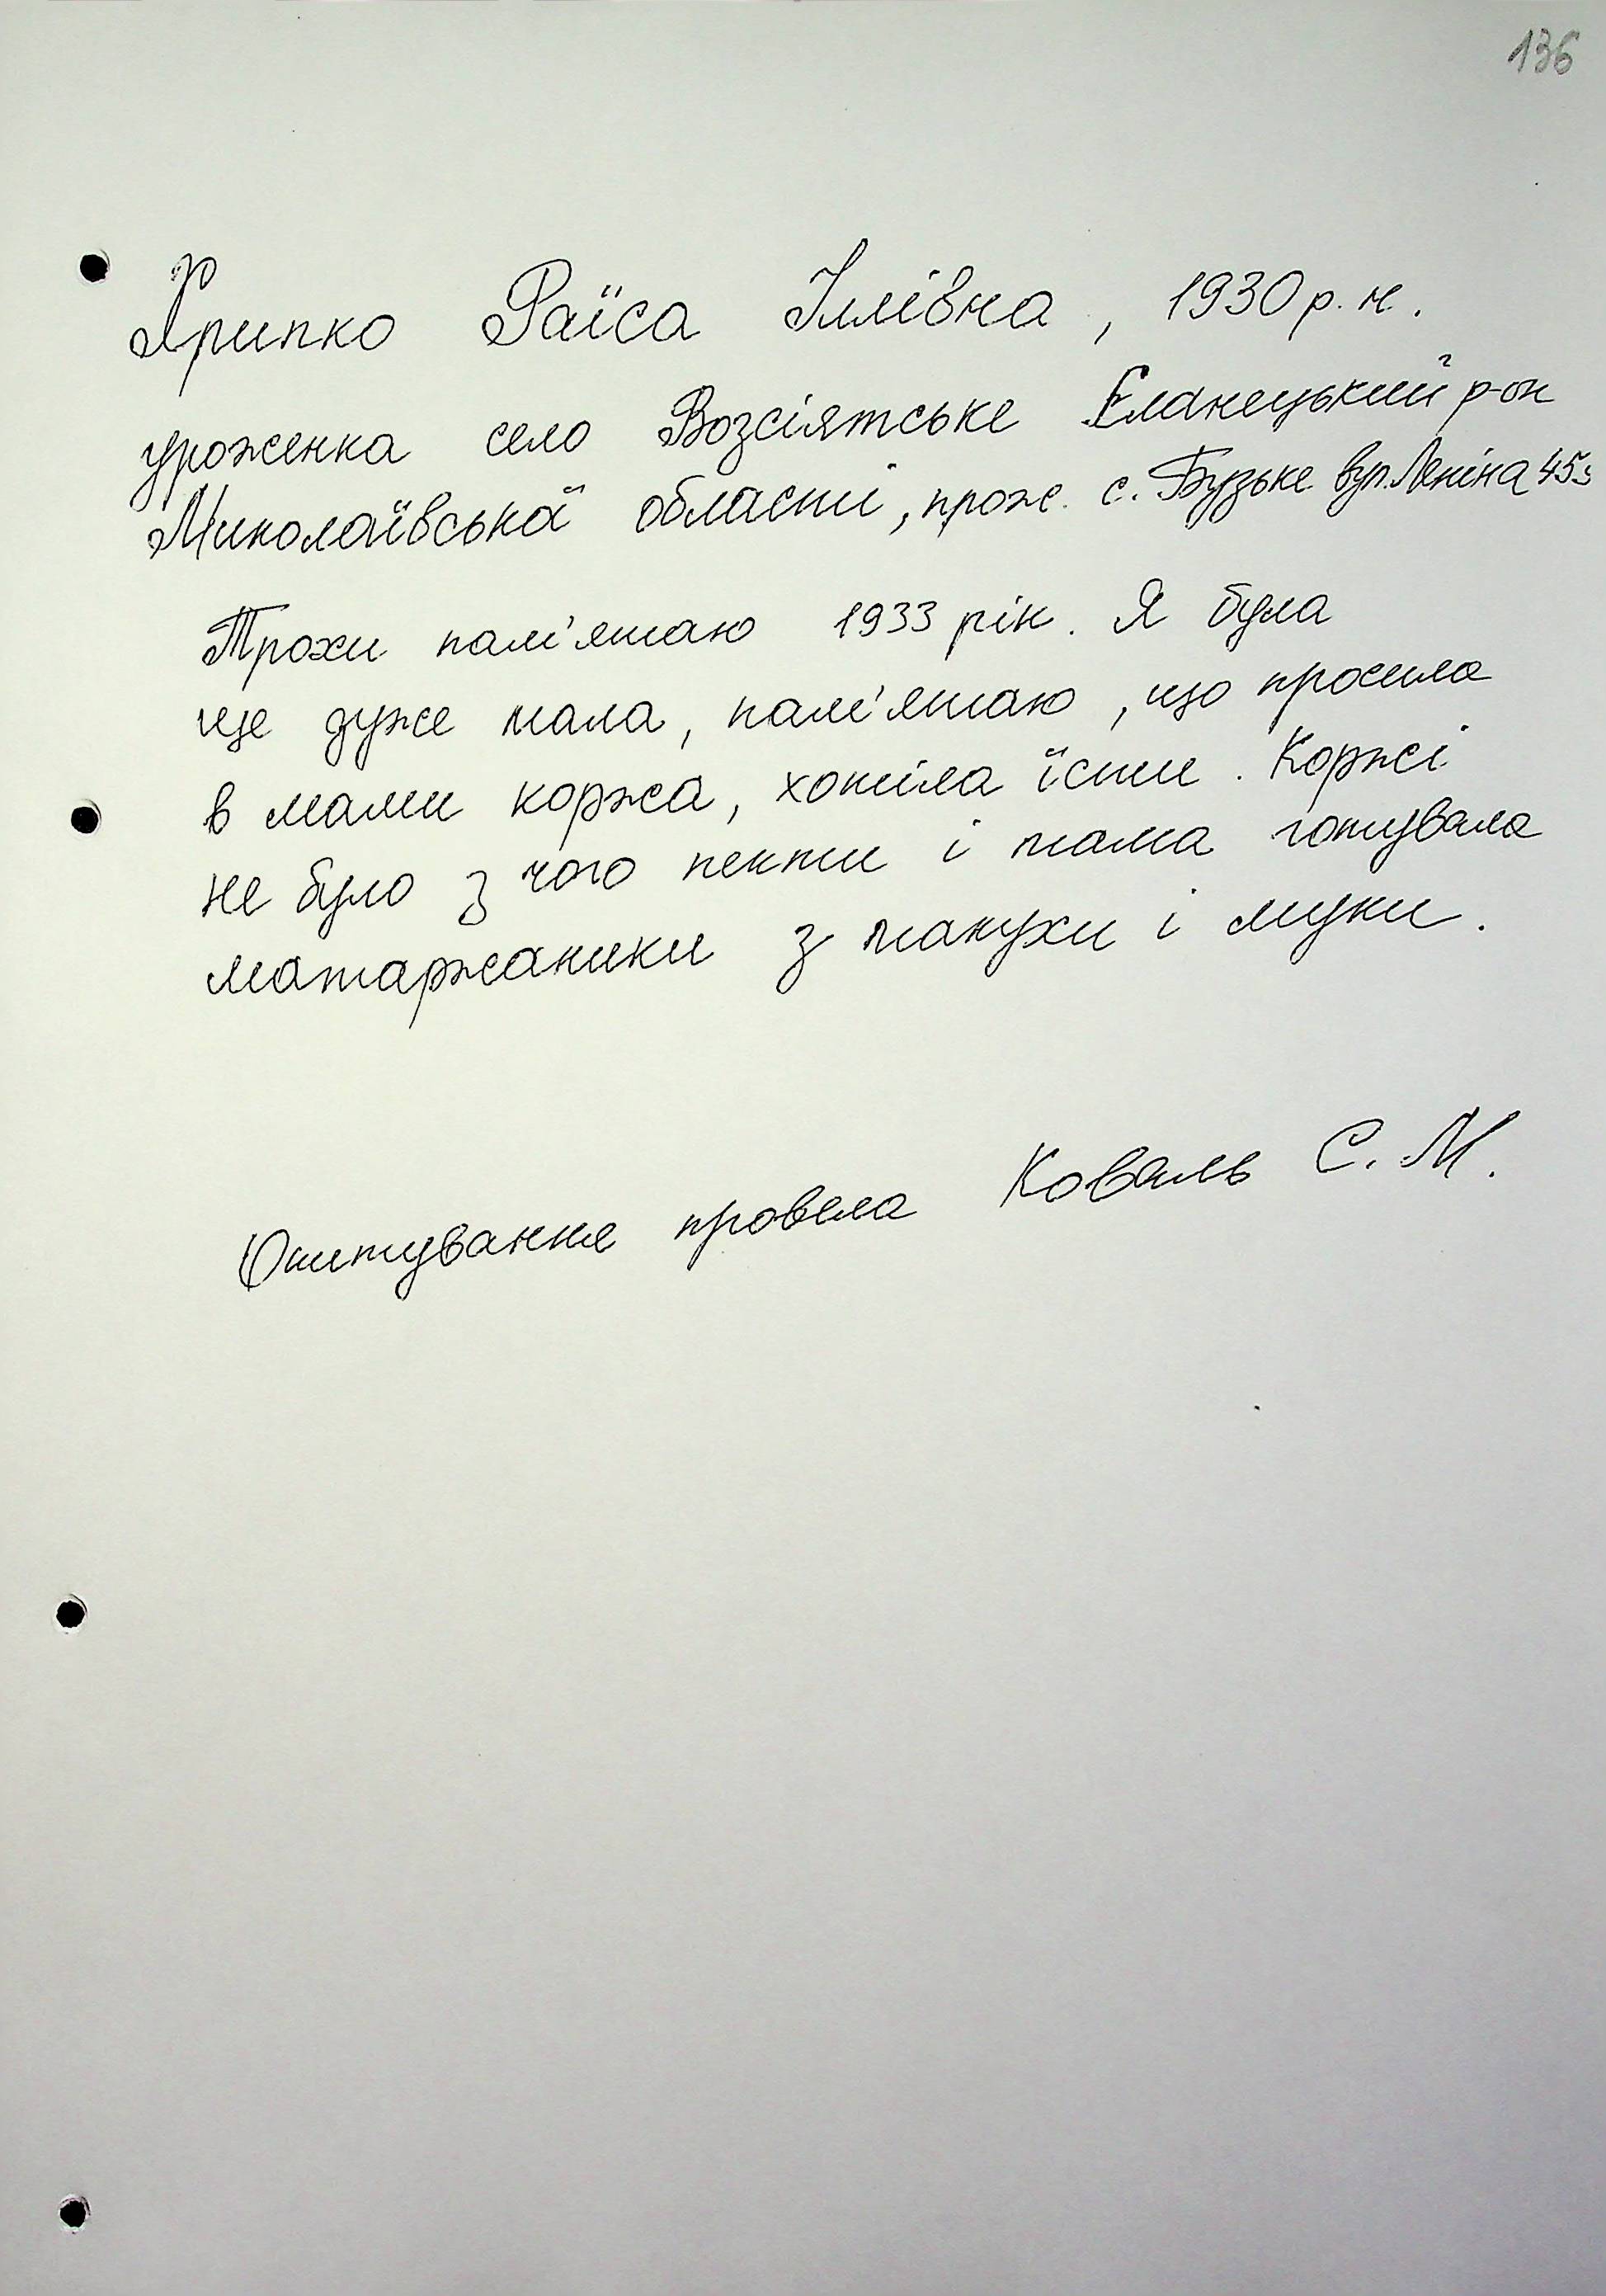 136
Хрипко Раїса Іллівна, 1930 р. н.
уроженка село Возсіятське Єланецький р-он
Миколаївська області, прож. с. Бузьке вул. Леніна 45
Трохи пам'ятаю 1933 рік. Я була
ще дуже мала, пам'ятаю, що просила
в мами коржа, хотіла їсти. Коржі
не було з чого пекти і мама готувала
матаржаники з макухи і муки.
Опитування провела Коваль С. М.